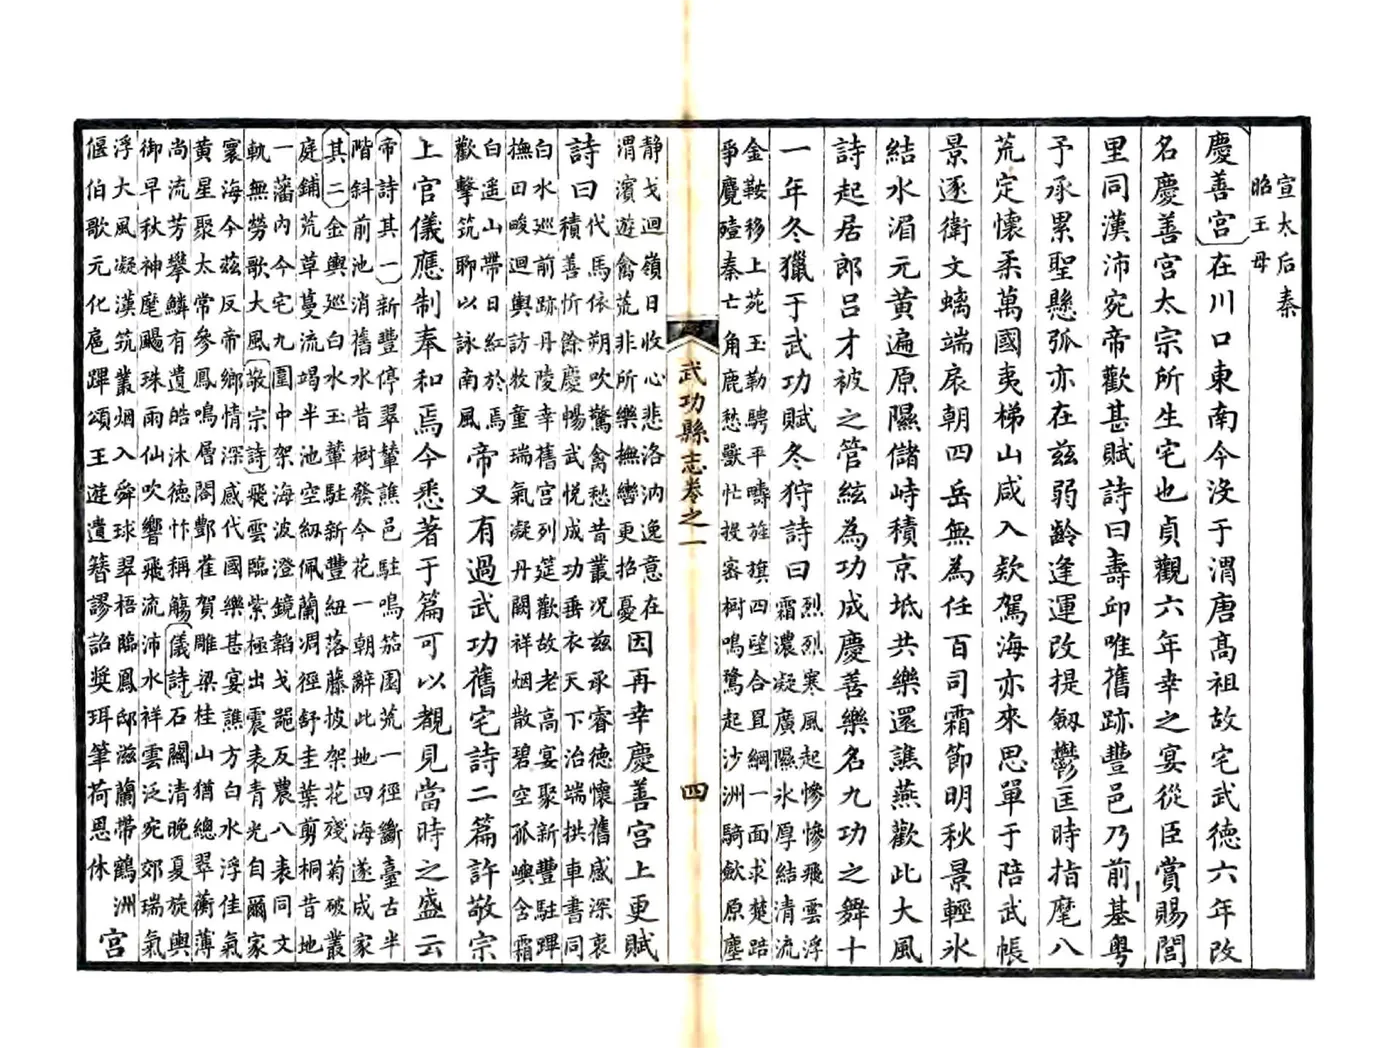 宣太后秦
昭王母
慶善宮在川口東南今没于渭唐髙祖故宅武德六年改
名慶善宮太宗所生宅也貞觀六年幸之宴從臣賞賜閭
里同漢沛宛帝歡甚賦詩曰壽邱唯舊跡豐邑乃前基粤
予承累聖懸弧亦在兹弱齡逢運改提劔鬱匡時指麾八
荒定懷柔萬國夷梯山咸入欵駕海亦來思單于陪武帳
景逐衛文螭端扆朝四岳無為任百司霜節明秋景輕氷
結水湄元黄遍原隰儲峙積京坻共樂還譙燕歡此大風
詩起居郎吕才被之管絃為功成慶善樂名九功之舞十
一年冬獵于武功賦冬狩詩曰
烈烈寒風起慘慘飛雲浮
霜濃凝廣隰氷厚結清流
金鞍移上苑玉勒騁平疇旌旗四望合罝綱一面求楚踣
爭麑殪秦亡角鹿愁獸忙投密樹鳴鷺起沙洲騎歛原塵
武功縣志卷之一
四
静戈迴嶺日收心悲洛汭逸意在
渭濱遊禽荒非所樂撫轡更招憂
因再幸慶善宮上更賦
詩曰
代馬依朔吹驚禽愁昔叢况兹承睿德懷舊感深衷
積善忻餘慶暢武悦成功垂衣天下治端拱車書同
白水巡前跡丹陵幸舊宮列筵歡故老高宴聚新豐駐蹕
撫田畯迴輿訪牧童瑞氣凝丹闕祥烟散碧空孤嶼含霜
白遥山帶日紅於焉
歡擊筑聊以詠南風
帝又有過武功舊宅詩二篇許敬宗
上官儀應制奉和焉今悉著于篇可以觀見當時之盛云
帝詩其一新豐停翠輦譙邑駐鳴笳園荒一徑斷臺古半
階斜前池消舊水昔樹發今花一朝辭此地四海遂成家
其二金輿巡白水玉輦駐新豐紐落藤披架花殘菊破叢
庭鋪荒草蔓流竭半池空紉佩蘭凋徑舒圭葉剪桐昔地
一藩内今宅九圍中架海波澄鏡韜戈噐反農八表同文
軌無勞歌大風敬宗詩飛雲臨紫極出震表青光自爾家
寰海今兹反帝鄉情深感代國樂甚宴譙方白水浮佳氣
黄星聚太常參鳳鳴層閣酆雀賀雕梁桂山猶總翠蘅薄
尚流芳攀鱗有遺皓沐德忭稱觴儀詩石關清晚夏旋輿
御早秋神麾颺珠雨仙吹響飛流沛水祥雲泛宛郊瑞氣
浮大風凝漢筑叢烟入舜球翠梧臨鳳邸滋蘭帶鶴洲
偃伯歌元化扈蹕頌王遊遺簪謬詔奬珥筆荷恩休
宮